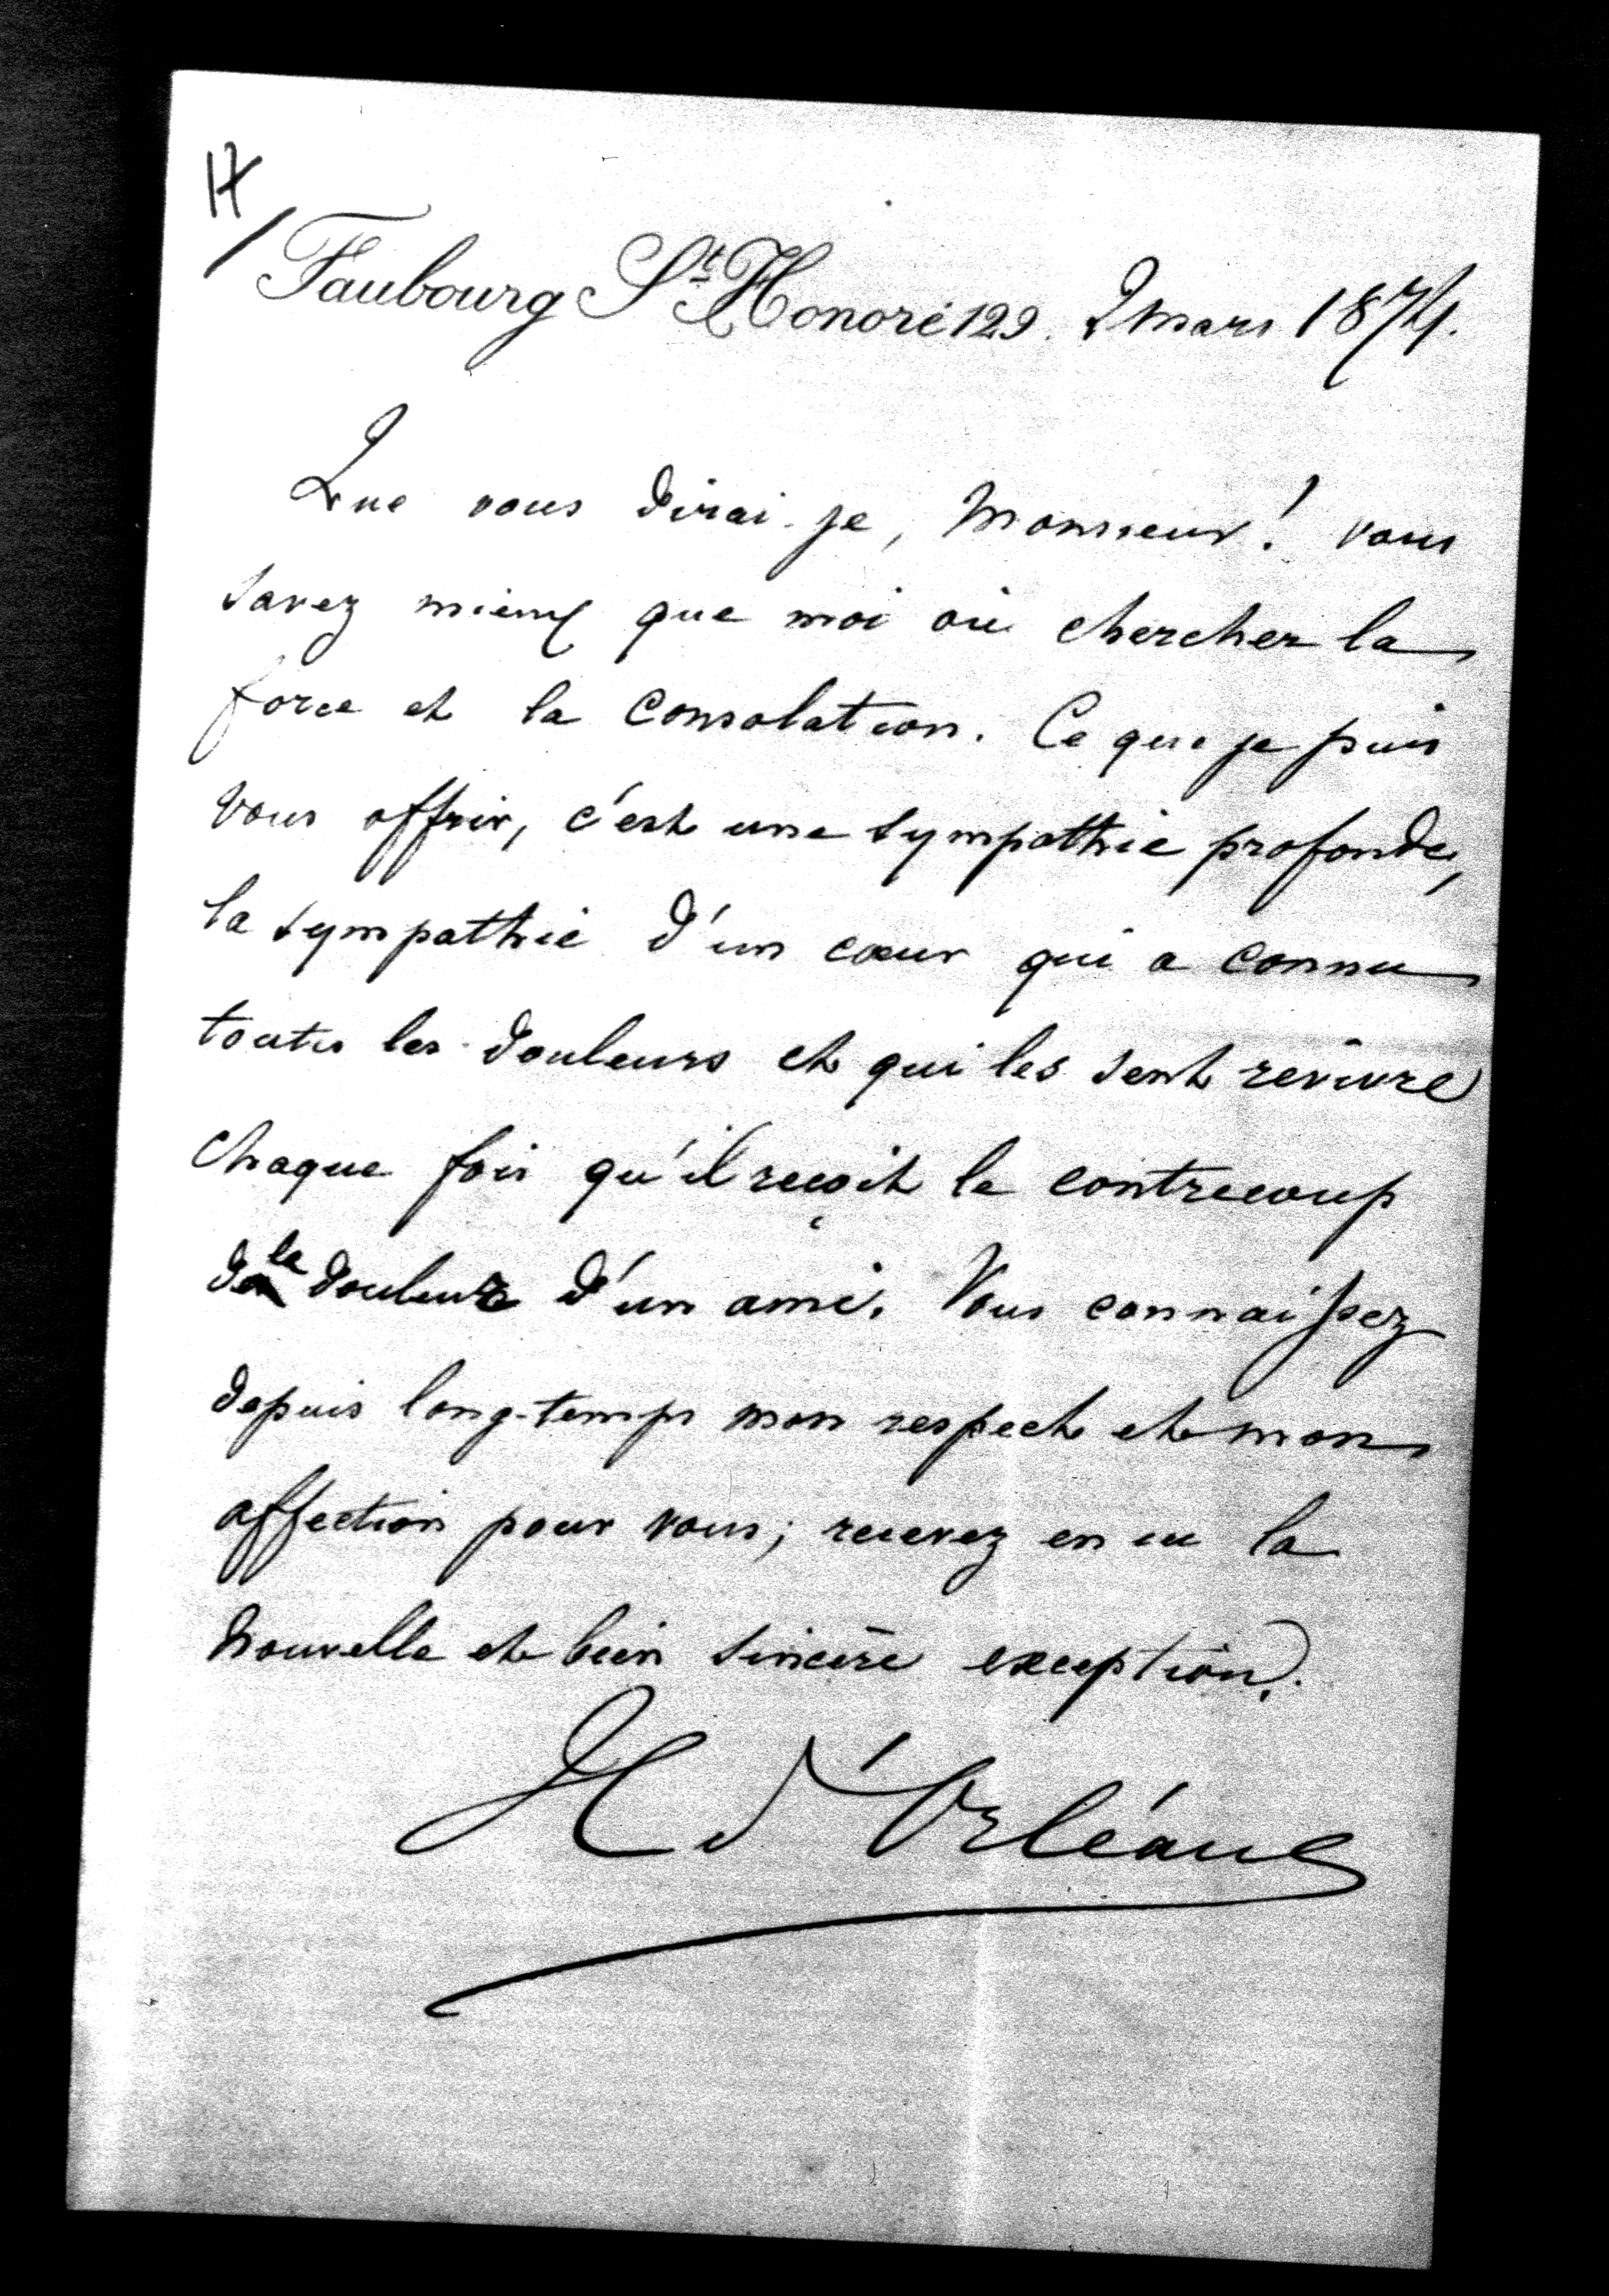 17/
Faubourg St. Honoré 129. 2 mars 1874.
Que vous dirai-je, Monsieur! vous
savez mieux que moi où chercher la
force et la consolation. Ce que je puis
vous offrir, c'est une sympathie profonde,
la sympathie d'un cœur qui a connu
toutes les douleurs et qui les sent revivre
chaque fois qu'il reçoit le contrecoup
de la douleur d'un ami. Vous connaissez
depuis long-temps mon respect et mon
affection pour vous; recevez en ici la
nouvelle et bien sincère exception.
H d'Orléans